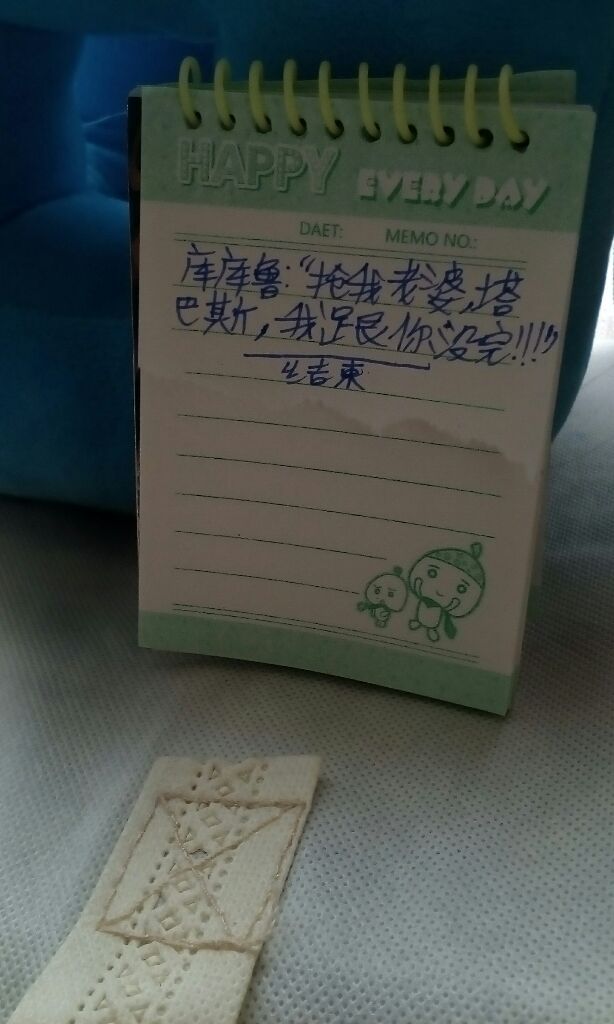 HAPPY EVERY DAY
DAET: MEMO NO.:
库库鲁:“抢我老婆,塔
巴斯,我跟你没完!!!”
结束